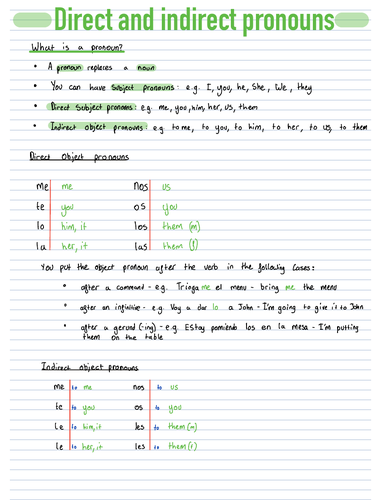 Direct and indirect pronouns
What is a pronoun?
• A pronoun replaces a noun
• You can have subject pronouns: e.g. I, you, he, She, We, they
• Direct Subject pronouns: e.g. me, you, him, her, us, them
• Indirect object pronouns: e.g. to me, to you, to him, to her, to us, to them
Direct Object pronouns
me me nos us
te you os you
lo him, it los them (m)
la her, it las them (f)
You put the object pronoun after the verb in the following cases:
• after a command - e.g. Tringa me el menu - bring me the menu
• after an infinitive - e.g. Voy a dar lo a John - I'm going to give it to John
• after a gerund (-ing) - e.g. EStay pomiendo los en la mesa - I'm putting
them on the table
Indirect object pronouns
me to me nos to us
te to you os to you
Le to him, it les to them (m)
le to her, it les to them (f)